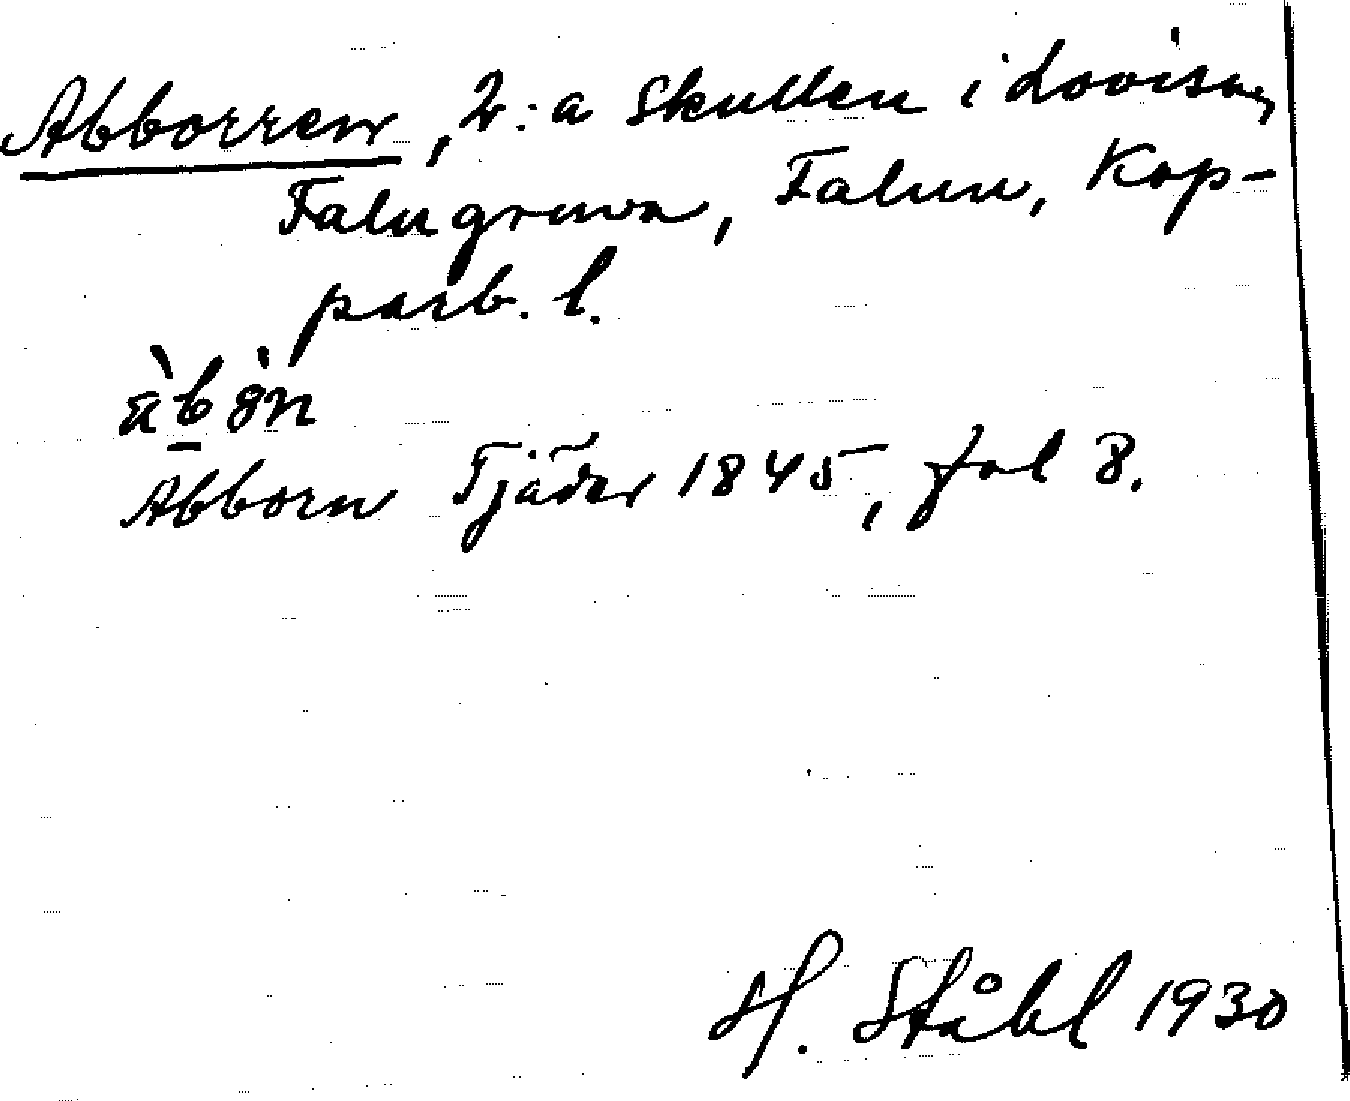 Abborren, 2:a Skullen i Lovisa,
Falugruva, Falun, Kop-
parb. l.
àb̲òn
Abborn Tjäder 1845, fol 8.
H. Ståhl 1930